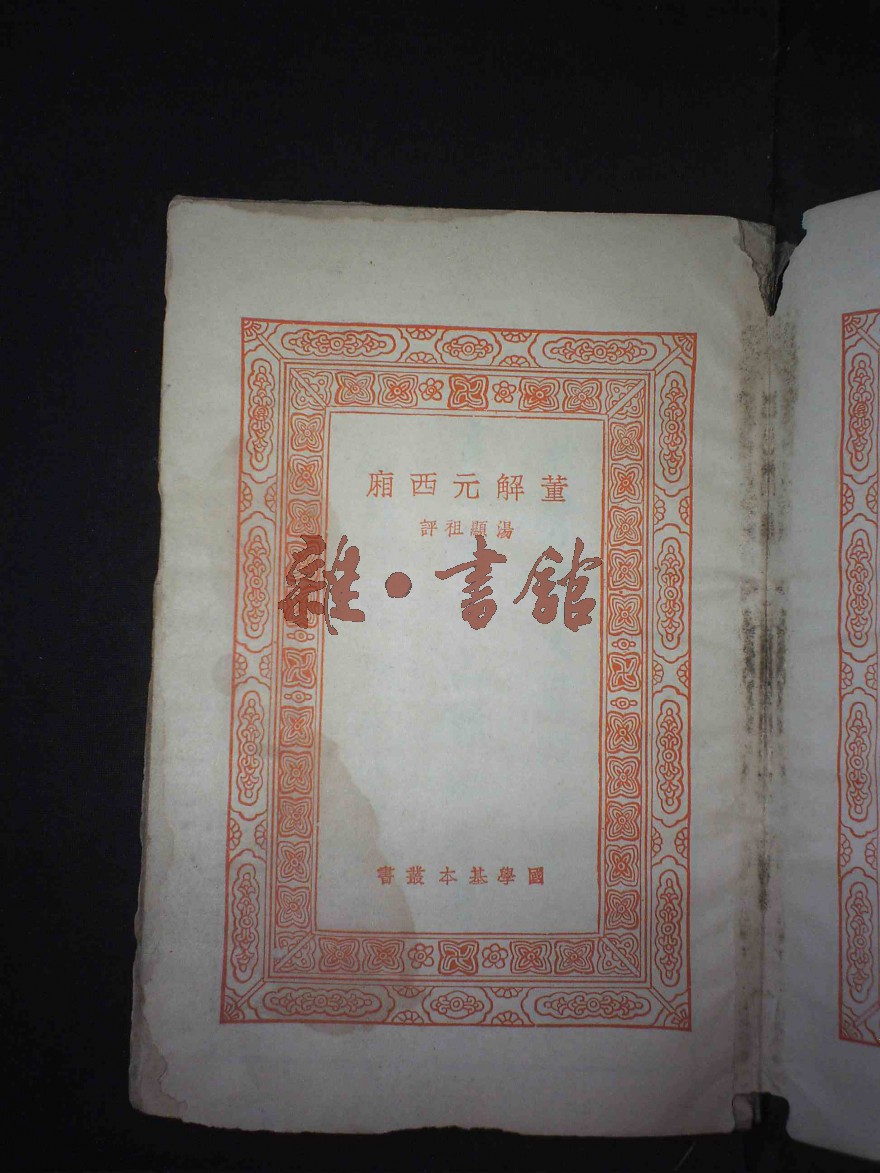 董解元西廂
湯顯祖評
雜·書館
國學基本叢書